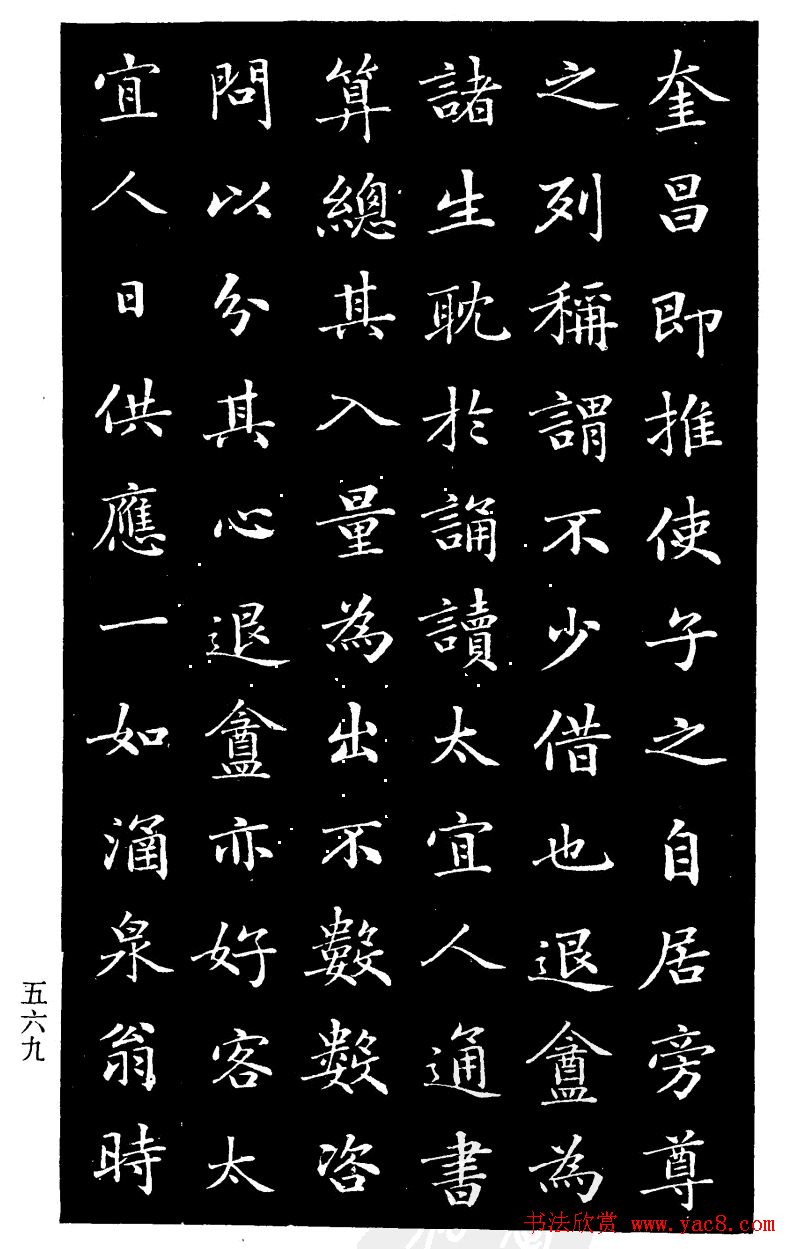 奎昌即推使子之自居旁尊
之列稱謂不少借也退盦為
諸生耽於誦讀太宜人通書
算總其入量為出不數數咨
問以分其心退盦亦好客太
宜人日供應一如湧泉翁時
五六九
书法欣赏 www.yac8.com